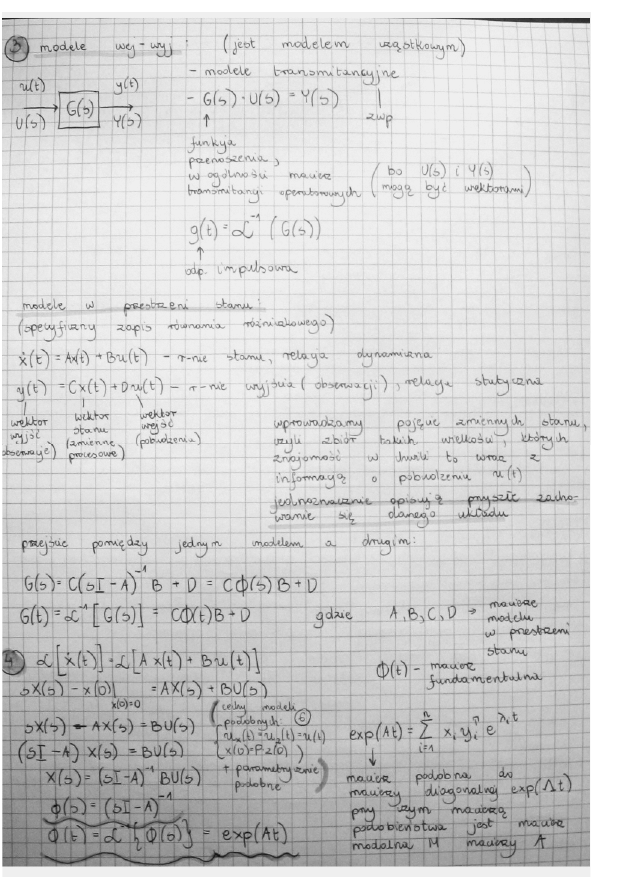 3 modele wej-wyj: (jest modelem cząstkowym)
- modele transmitancyjne
u(t) y(t)
G(s)
U(s) Y(s)
- G(s)·U(s) = Y(s)
zwp
funkcja
przenoszenia,
w ogólności macierz
transmitancji operatorowych (bo U(s) i Y(s)
mogą być wektorami)
g(t) = ℒ⁻¹ (G(s))
odp. impulsowa
modele w przestrzeni stanu:
(specyficzny zapis równania różniczkowego)
ẋ(t) = Ax(t) + Bu(t) - r-nie stanu, relacja dynamiczna
y(t) = Cx(t) + Du(t) - r-nie wyjścia (obserwacji), relacja statyczna
wektor wyjść (obserwacje)
wektor stanu (zmienne procesowe)
wektor wejść (pobudzenia)
wprowadzamy pojęcie zmiennych stanu,
czyli zbiór takich wielkości, których
znajomość w chwili t₀ wraz z
informacją o pobudzeniu u(t)
jednoznacznie opisują przyszłe zacho-
wanie się danego układu
przejście pomiędzy jednym modelem a drugim:
G(s) = C(sI-A)⁻¹ B + D = Cϕ(s)B + D
G(t) = ℒ⁻¹[G(s)] = Cϕ(t)B + D
gdzie A, B, C, D → macierze
modelu
w przestrzeni
stanu
ϕ(t) - macierz
fundamentalna
4 ℒ[ẋ(t)] = ℒ[Ax(t) + Bu(t)]
sX(s) - x(0)| x(0)=0 = AX(s) + BU(s)
sX(s) - AX(s) = BU(s)
(sI-A) X(s) = BU(s)
X(s) = (sI-A)⁻¹ BU(s)
ϕ(s) = (sI-A)⁻¹
ϕ(t) = ℒ⁻¹{ϕ(s)} = exp(At)
(cechy modeli
podobnych: 6
u₁(t)=u₂(t)=u(t)
x(0)=Pz(0)
+ parametrycznie
podobne)
exp(At) = Σ i=1 n xᵢ yᵢᵀ e^λᵢt
macierz podobna do
macierzy diagonalnej exp(Λt)
przy czym macierzą
podobieństwa jest macierz
modalna M macierzy A